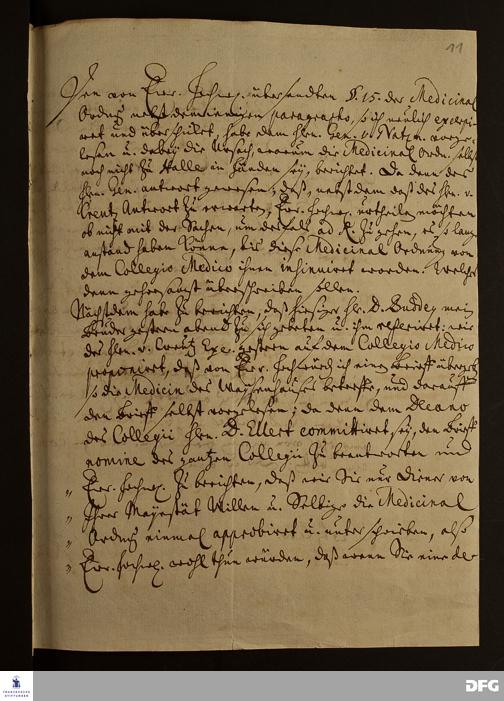 11
Den von Ewr. Hochw. übersandten §. 15. der Medicinal
Ordng nebst demjenigen paragrapho, so ich neulich excerpi-
ret und überschicket, habe dem Hrn. Gen. v. Natzm. vorge-
lesen u. dabey die Ursach warum die Medicinal Ordn. selbst
noch nicht zu Halle in Händen sey, berichtet. Da denn des
Hrn. Gen. antwort gewesen, daß, nebst dem daß des Hn. v.
Creutz Antwort zu erwarten, Ewr. Hochw. urtheilen möchten
ob nicht mit der Sachen, um deshalb ad R. zu gehen, es so lang
anstand haben könne, bis diese Medicinal Ordnung von
dem Collegio Medico ihnen insinuiret worden. Welches
denn gehorsamst überschreiben sollen.
Nächstdem habe zu berichten, daß hiesiger Hr. D. Buddey mein
Bruder gestern abend zu sich gebeten u. ihm referiret: wie
des Hrn. v. Creutz Exc. gestern auf dem Collegio Medico
proponiret, daß von Ewr. Hochwürd. ich einen Brieff übergeben
so die Medicin des Waysenhauses betreffe, und darauff
den Brieff selbst vorgelesen; da denn dem Decano
des Collegii Hrn. D. Ellert committiret sey, den Brieff
nomine des gantzen Collegii zu beantworten und
" Ewr. Hochw. zu berichten, daß wie Sie nur Diener von
" Ihrer Mayestät Willen u. Selbige die Medicinal
" Ordng einmal approbiret u. unterschrieben, also
" Ewr. Hochw. wohl thun würden, daß wenn Sie eine de-
FRANCKESCHE
STIFTUNGEN
DFG